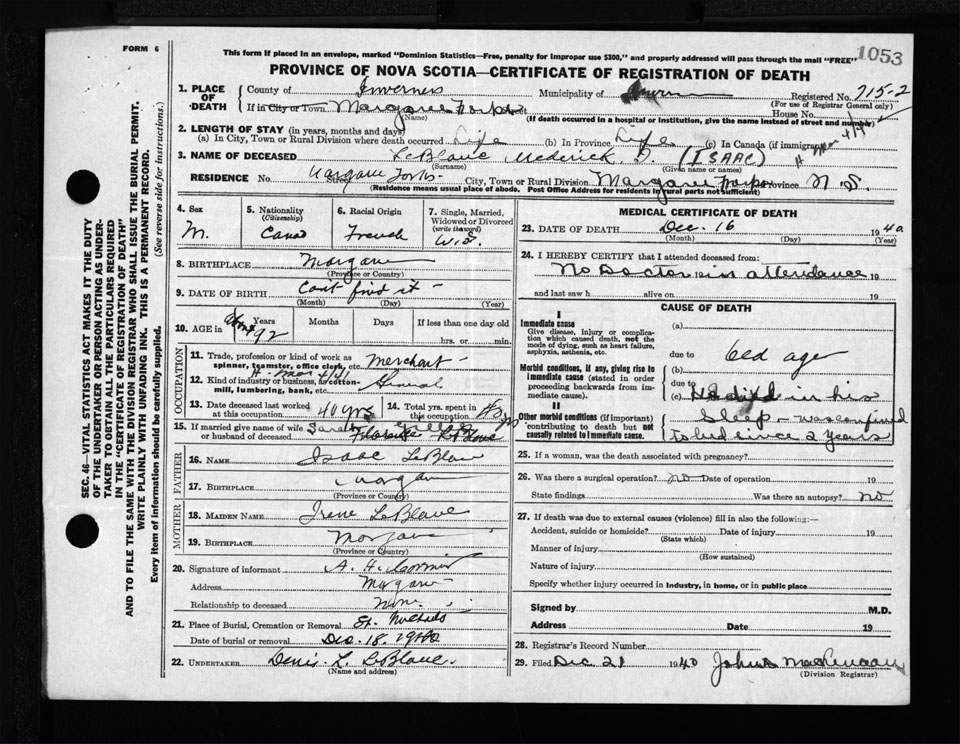 FORM 6
1053
This form if placed in an envelope, marked "Dominion Statistics—Free, penalty for improper use $300," and properly addressed will pass through the mail "FREE"
PROVINCE OF NOVA SCOTIA—CERTIFICATE OF REGISTRATION OF DEATH
1. PLACE OF DEATH
County of Inverness Municipality of Registered No. 715-2
(For use of Registrar General only)
If in City or Town Margaree Forks House No.
(Name) (If death occurred in a hospital or institution, give the name instead of street and number)
2. LENGTH OF STAY (in years, months and days)
(a) In City, Town or Rural Division where death occurred Life (b) In Province Life (c) In Canada (if immigrant)
3. NAME OF DECEASED LeBlanc Mederick D. (ISAAC)
(Surname) (Given name or names)
RESIDENCE No. Street Margaree Forks City, Town or Rural Division Margaree Forks Province N. S.
(Residence means usual place of abode. Post Office Address for residents in rural parts not sufficient)
4. Sex
M.
5. Nationality
(Citizenship)
Cana
6. Racial Origin
French
7. Single, Married, Widowed or Divorced
(write the word)
8. BIRTHPLACE Margaree
(Province or Country)
9. DATE OF BIRTH Cant find it
(Month) (Day) (Year)
10. AGE in Years Months Days If less than one day old
92 hrs. or min.
OCCUPATION
11. Trade, profession or kind of work as spinner, teamster, office clerk, etc. Merchant
12. Kind of industry or business, as cotton-mill, lumbering, bank, etc. General
13. Date deceased last worked at this occupation 40 yrs
14. Total yrs. spent in this occupation
15. If married give name of wife or husband of deceased Sarah
LeBlanc
FATHER
16. NAME Isaac LeBlanc
17. BIRTHPLACE Margaree
(Province or Country)
MOTHER
18. MAIDEN NAME Irene LeBlanc
19. BIRTHPLACE Margaree
(Province or Country)
20. Signature of informant A. H. Cormier
Address Margaree
Relationship to deceased None
21. Place of Burial, Cremation or Removal St. Michaels
Date of burial or removal Dec. 18. 1940
22. UNDERTAKER Denis L. LeBlanc
(Name and address)
MEDICAL CERTIFICATE OF DEATH
23. DATE OF DEATH Dec. 16 1940
(Month) (Day) (Year)
24. I HEREBY CERTIFY that I attended deceased from:
No Doctor in attendance 19
and last saw h alive on 19
CAUSE OF DEATH
I
Immediate cause
Give disease, injury or complication which caused death, not the mode of dying, such as heart failure, asphyxia, asthenia, etc.
(a)
due to Old age
Morbid conditions, if any, giving rise to immediate cause (stated in order proceeding backwards from immediate cause).
(b)
due to
(c) He died in his
II
Other morbid conditions (if important) contributing to death but not causally related to immediate cause.
Sleep - was confined
to bed since 2 years
25. If a woman, was the death associated with pregnancy?
26. Was there a surgical operation? no Date of operation 19
State findings Was there an autopsy? no
27. If death was due to external causes (violence) fill in also the following:—
Accident, suicide or homicide? Date of injury 19
(State which)
Manner of Injury
(How sustained)
Nature of injury
Specify whether injury occurred in industry, in home, or in public place
Signed by M.D.
Address Date 19
28. Registrar's Record Number
29. Filed Dec 21 1940
(Division Registrar)
SEC. 46—VITAL STATISTICS ACT MAKES IT THE DUTY
OF THE UNDERTAKER OR PERSON ACTING AS UNDER-
TAKER TO OBTAIN ALL THE PARTICULARS REQUIRED
IN THE "CERTIFICATE OF REGISTRATION OF DEATH"
AND TO FILE THE SAME WITH THE DIVISION REGISTRAR WHO SHALL ISSUE THE BURIAL PERMIT.
WRITE PLAINLY WITH UNFADING INK. THIS IS A PERMANENT RECORD.
Every item of information should be carefully supplied. (See reverse side for instructions.)